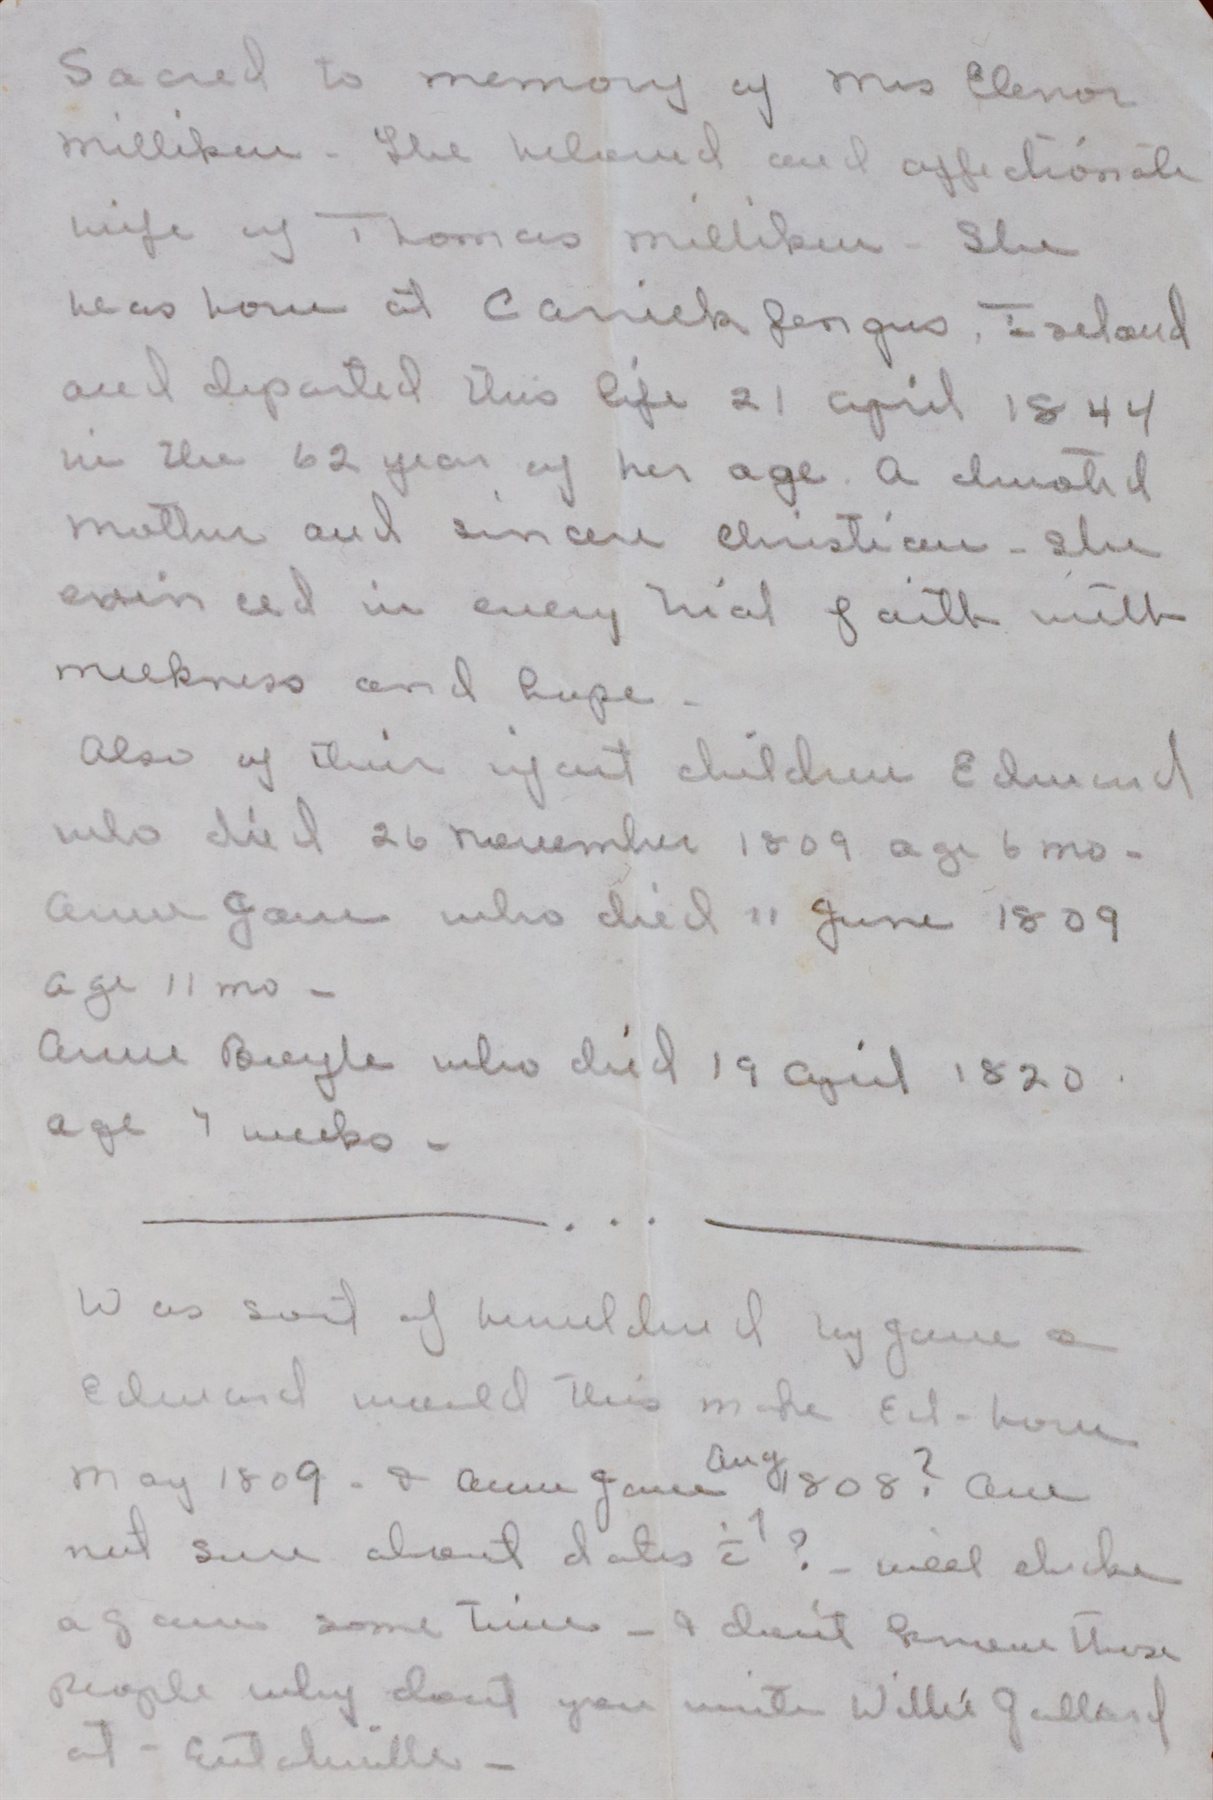 Sacred to memory of Mrs Elenor
Milliken - The beloved and affectionate
wife of Thomas Milliken - She
was born at Carrickfergus, Ireland
and departed this life 21 April 1844
in the 62 year of her age. A devoted
mother and sincere Christian - She
evinced in every trial faith with
meekness and hope -
Also of their infant children Edward
who died 26 November 1809 age 6 mo -
Anne Jane who died 11 June 1809
age 11 mo -
Anne Boyle who died 19 April 1820.
age 7 weeks -
Was sort of bewildered by Jane &
Edward would this make Ed - born
May 1809 - & Anne Jane Aug 1808? Am
not sure about dates ? - will check
again some time - I don't know those
people why dont you write Willie Gallard
at - Eutawville -